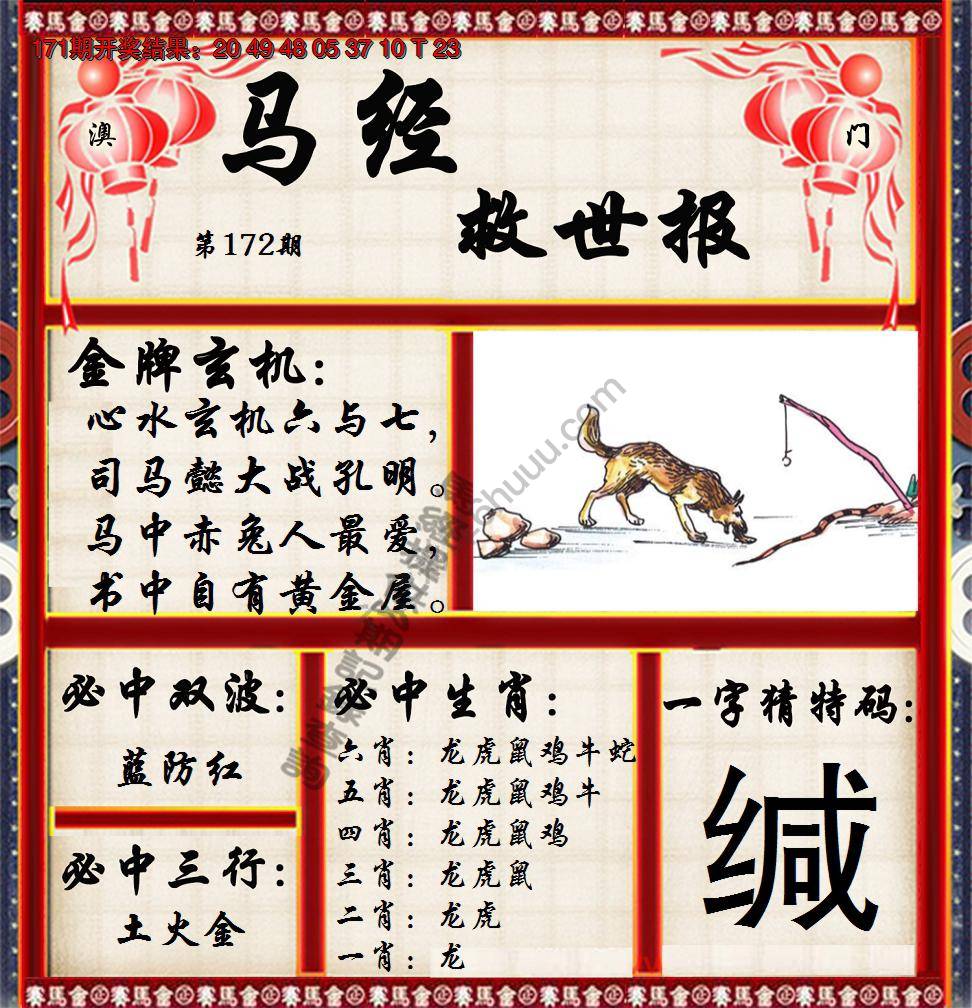 171期开奖结果：20 49 48 05 37 10 T 23
澳 门
马经
救世报
第172期
金牌玄机：
心水玄机六与七，
司马懿大战孔明。
马中赤兔人最爱，
书中自有黄金屋。
必中双波：
蓝防红
必中三行：
土火金
必中生肖：
六肖：龙虎鼠鸡牛蛇
五肖：龙虎鼠鸡牛
四肖：龙虎鼠鸡
三肖：龙虎鼠
二肖：龙虎
一肖：龙
一字猜特码：
缄